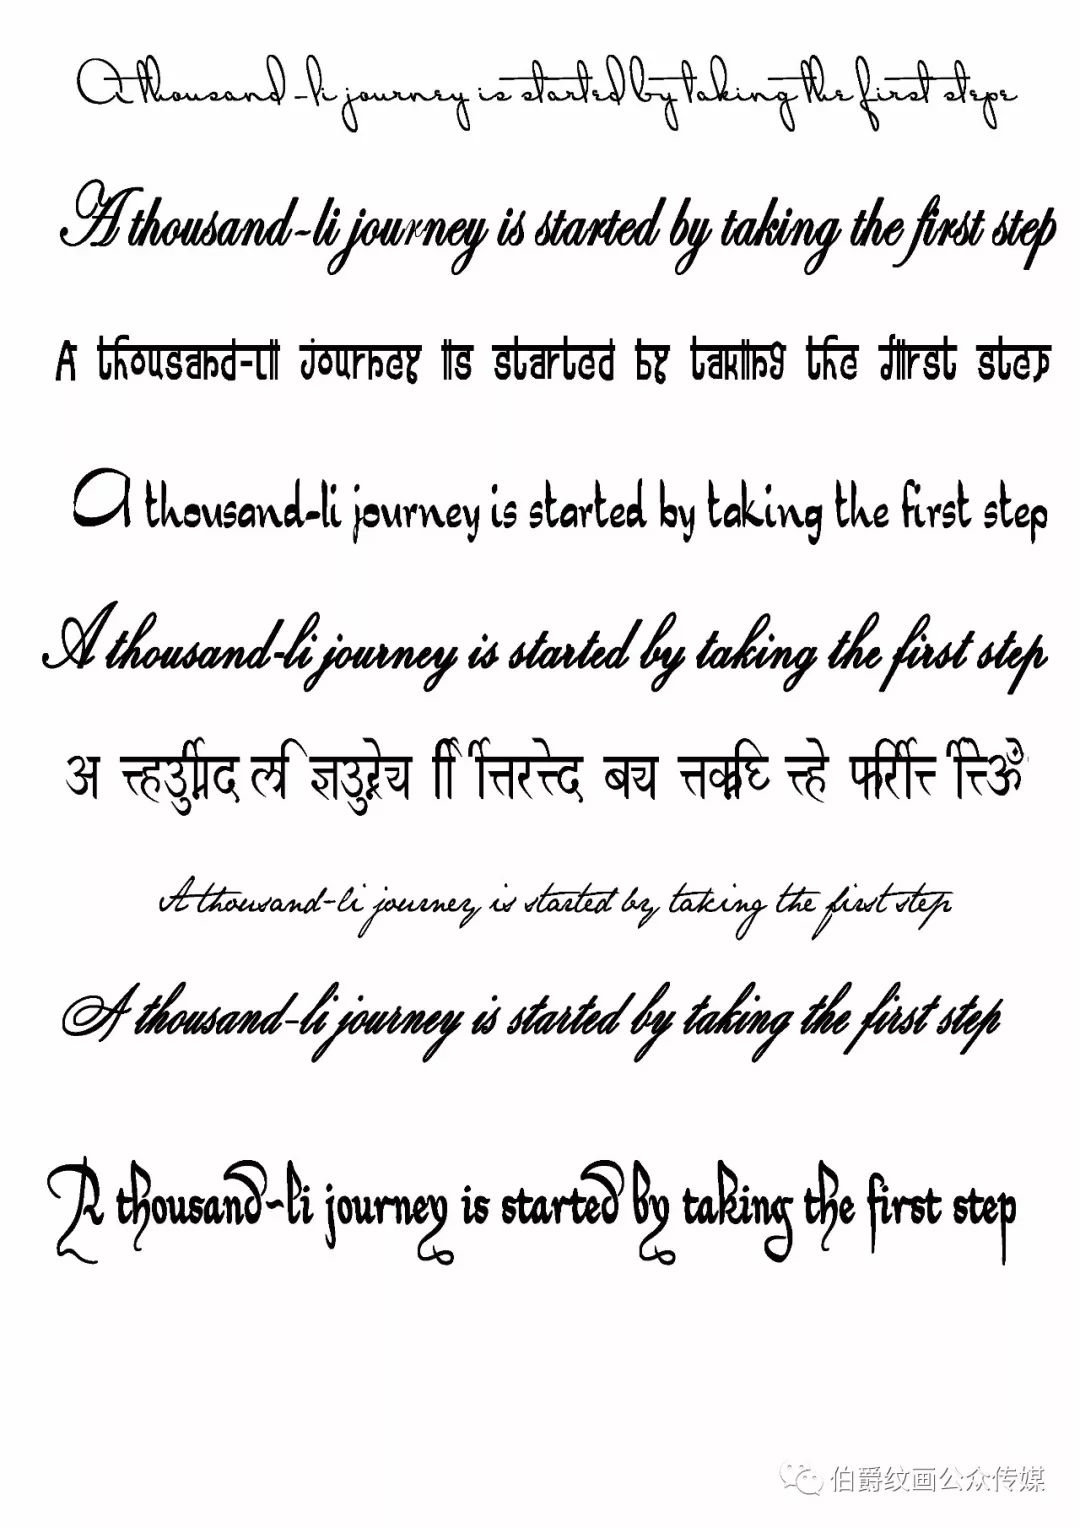 A thousand-li journey is started by taking the first stepe
A thousand-li journey is started by taking the first step
A thousand-li journey is started by taking the first step
A thousand-li journey is started by taking the first step
A thousand-li journey is started by taking the first step
अ
A thousand-li journey is started by taking the first step
A thousand-li journey is started by taking the first step
A thousand-li journey is started by taking the first step
伯爵纹画公众传媒